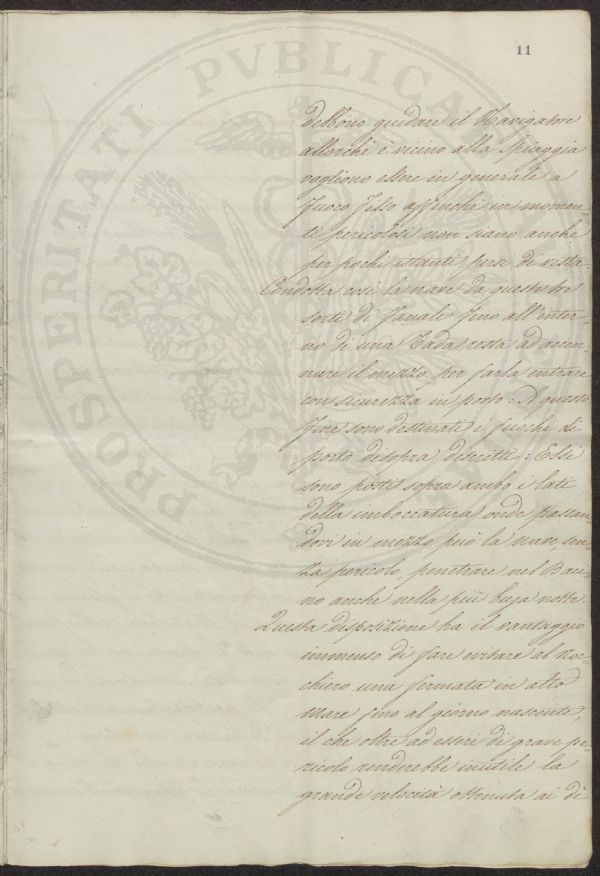 11
PROSPERITATI PVBLICAE
debbono guidare il Navigatore
allorchè è vicino alla spiaggia
vogliono essere in generale a
fuoco fisso affinchè in momen-
ti pericolosi non siano anche
per pochi istanti persi di vista.
Condotta così la nave da queste tre
sorte di fanali fino all'inter-
no di una Rada resta ad accen-
nare il mezzo per farla entrare
con sicurezza in porto: A questo
fine sono destinati i fuochi di
porto disopra descritti: Essi
sono posti sopra ambo i lati
della imboccatura onde passan-
dovi in mezzo può la nave, sen-
za pericolo, penetrare nel Baci-
no anche nella più buja notte.
Questa disposizione ha il vantaggio
immenso di fare evitare al Noc-
chiero una fermata in alto
mare fino al giorno nascente,
il che oltre ad essere di grave pe-
ricolo renderebbe inutile la
grande velocità ottenuta ai dì